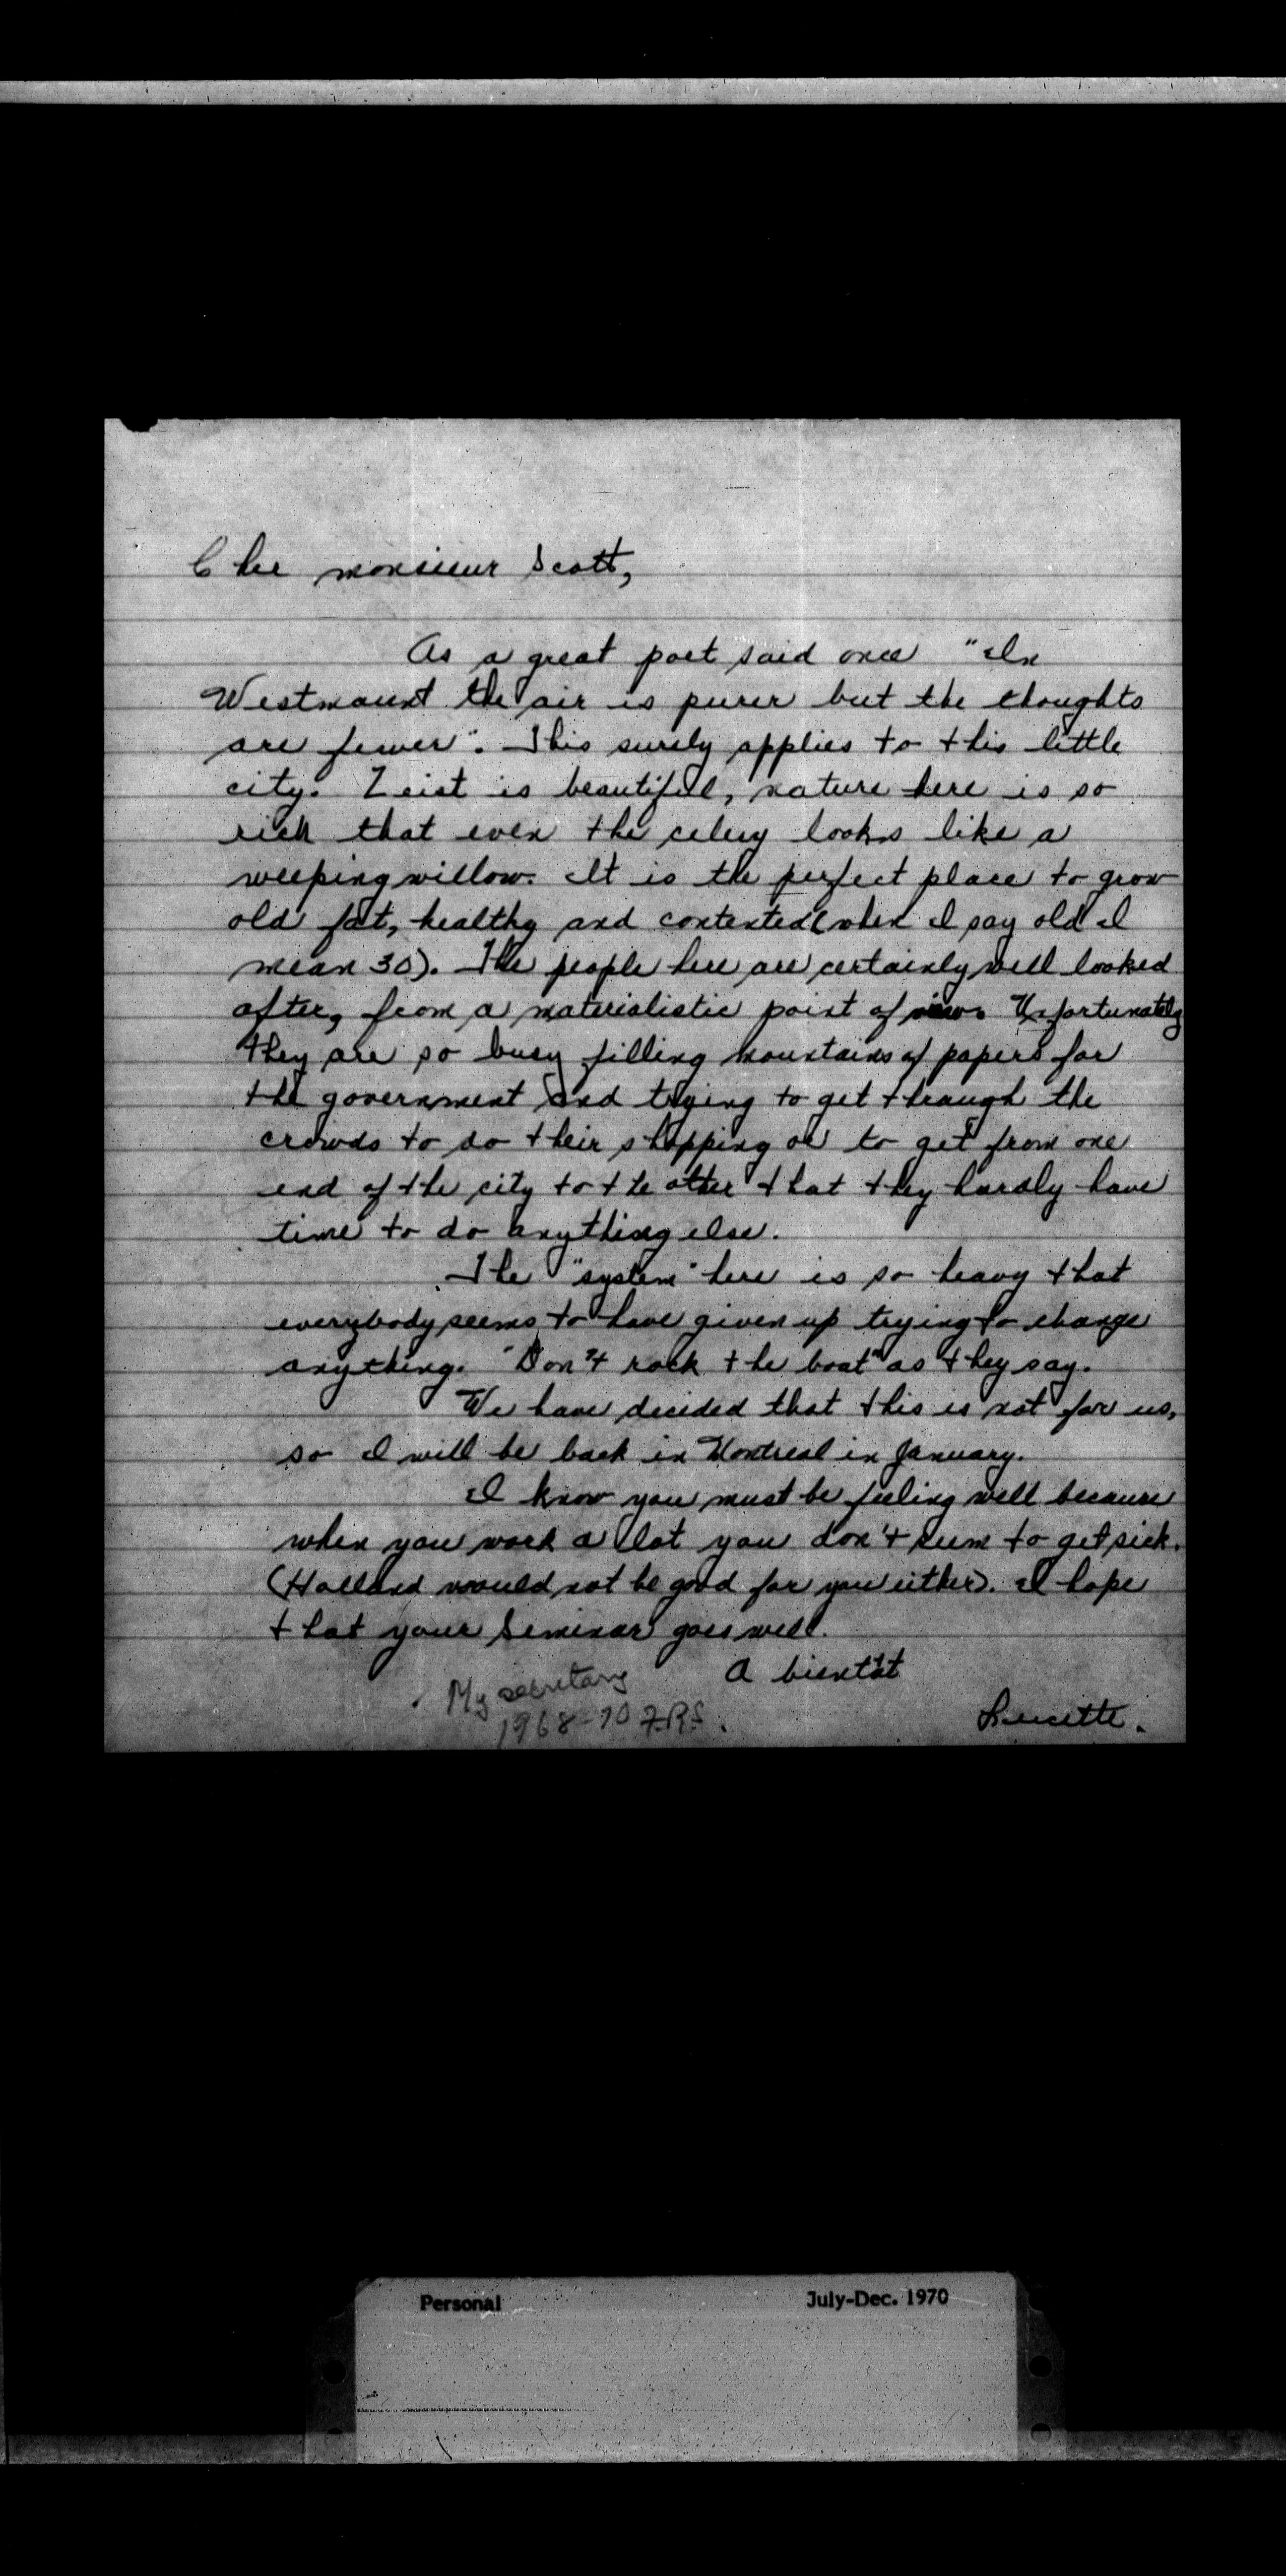 Cher monsieur Scott,
As a great poet said once "In
Westmount the air is purer but the thoughts
are fewer". This surely applies to this little
city. Zeist is beautiful, nature here is so
rich that even the celery looks like a
weeping willow. It is the perfect place to grow
old fat, healthy and contented (when I say old I
mean 30). The people here are certainly well looked
after, from a materialistic point of view. Unfortunately
they are so busy filling mountains of papers for
the government and trying to get through the
crowds to do their shopping or to get from one
end of the city to the other that they hardly have
time to do anything else.
The "system" here is so heavy that
everybody seems to have given up trying to change
anything. "Don't rock the boat" as they say.
We have decided that this is not for us,
so I will be back in Montreal in January.
I know you must be feeling well because
when you work a lot you don't seem to get sick.
(Holland would not be good for you either). I hope
that your Seminar goes well.
A bientôt
Lucette.
My secretary
1968-70 F.R.S.
Personal July-Dec. 1970